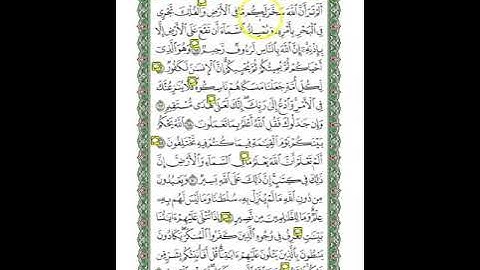 أَلَمْ تَرَ أَنَّ ٱللَّهَ سَخَّرَ لَكُم مَّا فِي ٱلْأَرْضِ وَٱلْفُلْكَ تَجْرِي
فِي ٱلْبَحْرِ بِأَمْرِهِۦ وَيُمْسِكُ ٱلسَّمَآءَ أَن تَقَعَ عَلَى ٱلْأَرْضِ إِلَّا
بِإِذْنِهِۦٓ إِنَّ ٱللَّهَ بِٱلنَّاسِ لَرَءُوفٌ رَّحِيمٌ ٦٥ وَهُوَ ٱلَّذِيٓ
أَحْيَاكُمْ ثُمَّ يُمِيتُكُمْ ثُمَّ يُحْيِيكُمْ إِنَّ ٱلْإِنسَٰنَ لَكَفُورٌ ٦٦
لِّكُلِّ أُمَّةٍ جَعَلْنَا مَنسَكًا هُمْ نَاسِكُوهُ فَلَا يُنَٰزِعُنَّكَ
فِي ٱلْأَمْرِ وَٱدْعُ إِلَىٰ رَبِّكَ إِنَّكَ لَعَلَىٰ هُدًى مُّسْتَقِيمٍ ٦٧
وَإِن جَٰدَلُوكَ فَقُلِ ٱللَّهُ أَعْلَمُ بِمَا تَعْمَلُونَ ٦٨ ٱللَّهُ يَحْكُمُ
بَيْنَكُمْ يَوْمَ ٱلْقِيَٰمَةِ فِيمَا كُنتُمْ فِيهِ تَخْتَلِفُونَ ٦٩
أَلَمْ تَعْلَمْ أَنَّ ٱللَّهَ يَعْلَمُ مَا فِي ٱلسَّمَآءِ وَٱلْأَرْضِ إِنَّ
ذَٰلِكَ فِي كِتَٰبٍ إِنَّ ذَٰلِكَ عَلَى ٱللَّهِ يَسِيرٌ ٧٠ وَيَعْبُدُونَ
مِن دُونِ ٱللَّهِ مَا لَمْ يُنَزِّلْ بِهِۦ سُلْطَٰنًا وَمَا لَيْسَ لَهُم بِهِۦ
عِلْمٌ وَمَا لِلظَّٰلِمِينَ مِن نَّصِيرٍ ٧١ وَإِذَا تُتْلَىٰ عَلَيْهِمْ ءَايَٰتُنَا
بَيِّنَٰتٍ تَعْرِفُ فِي وُجُوهِ ٱلَّذِينَ كَفَرُوا۟ ٱلْمُنكَرَ يَكَادُونَ
يَسْطُونَ بِٱلَّذِينَ يَتْلُونَ عَلَيْهِمْ ءَايَٰتِنَا قُلْ أَفَأُنَبِّئُكُم بِشَرٍّ مِّن